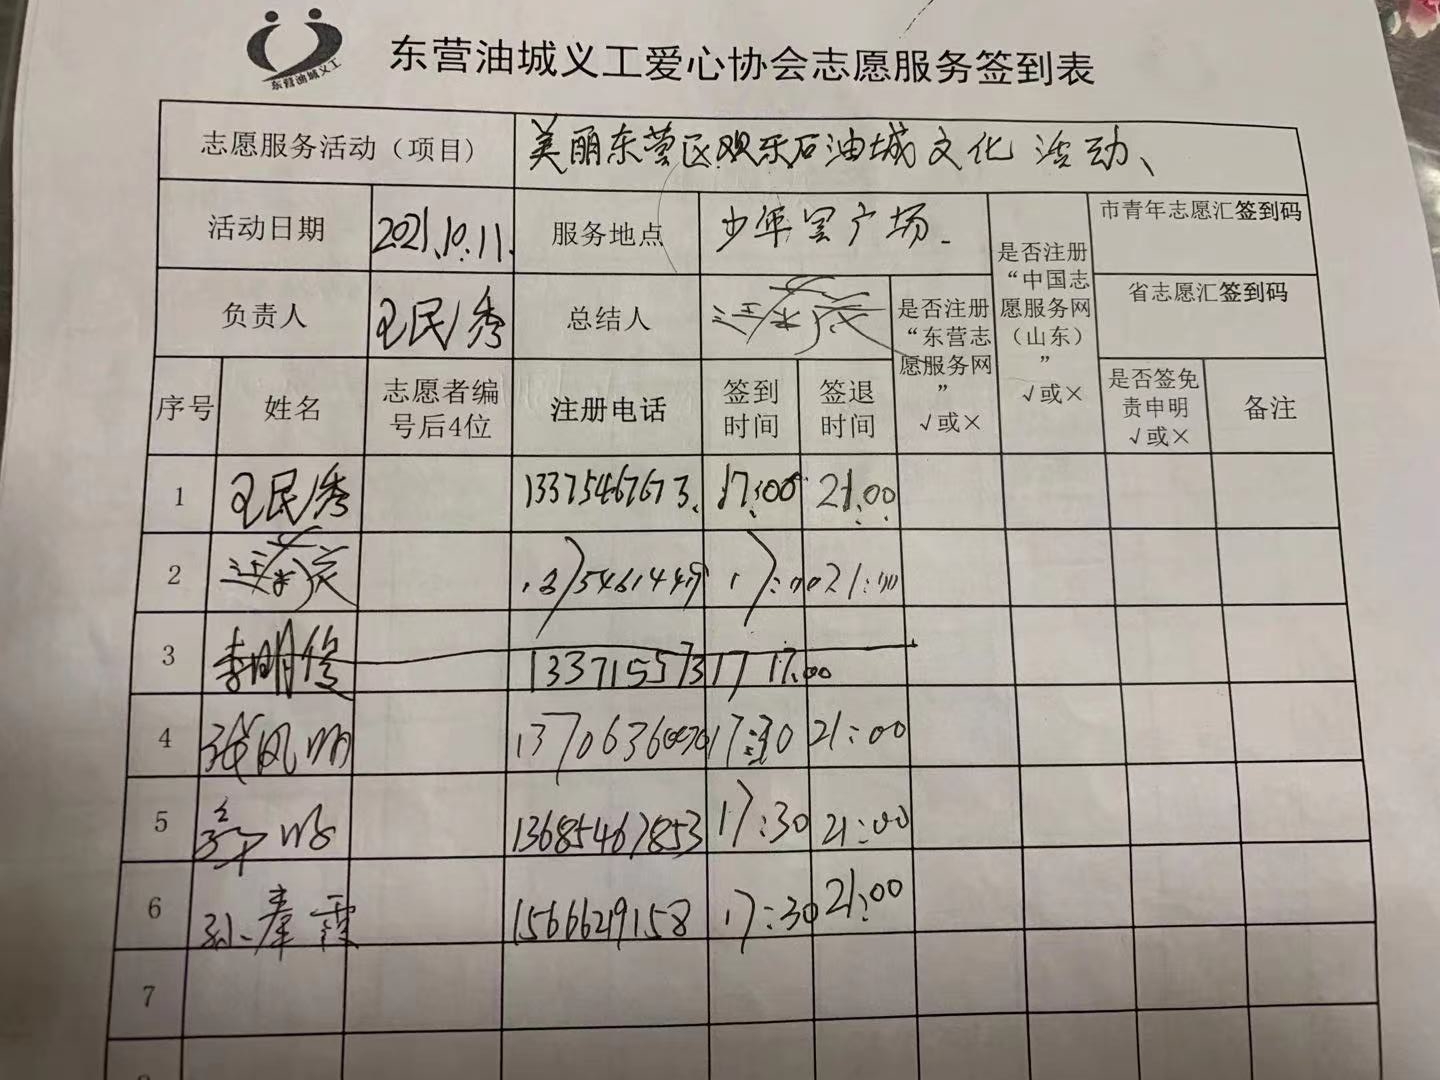 东营油城义工
东营油城义工爱心协会志愿服务签到表
志愿服务活动（项目） 美丽东营区欢乐石油城文化活动、
活动日期 2021.10.11. 服务地点 少年宫广场.
是否注册“中国志愿服务网（山东）” √或×
市青年志愿汇签到码
省志愿汇签到码
负责人 王民秀 总结人
是否注册“东营志愿服务网” √或×
序号 姓名 志愿者编号后4位 注册电话 签到时间 签退时间 是否签免责申明 √或× 备注
1 王民秀 13375467673. 17:00 21:00
2 17:00 21:00
3 李明俊 13371557317 17:00
4 张凤明 17:30 21:00
5 13685467853 17:30 21:00
6 孙春霞 1566629158 17:30 21:00
7